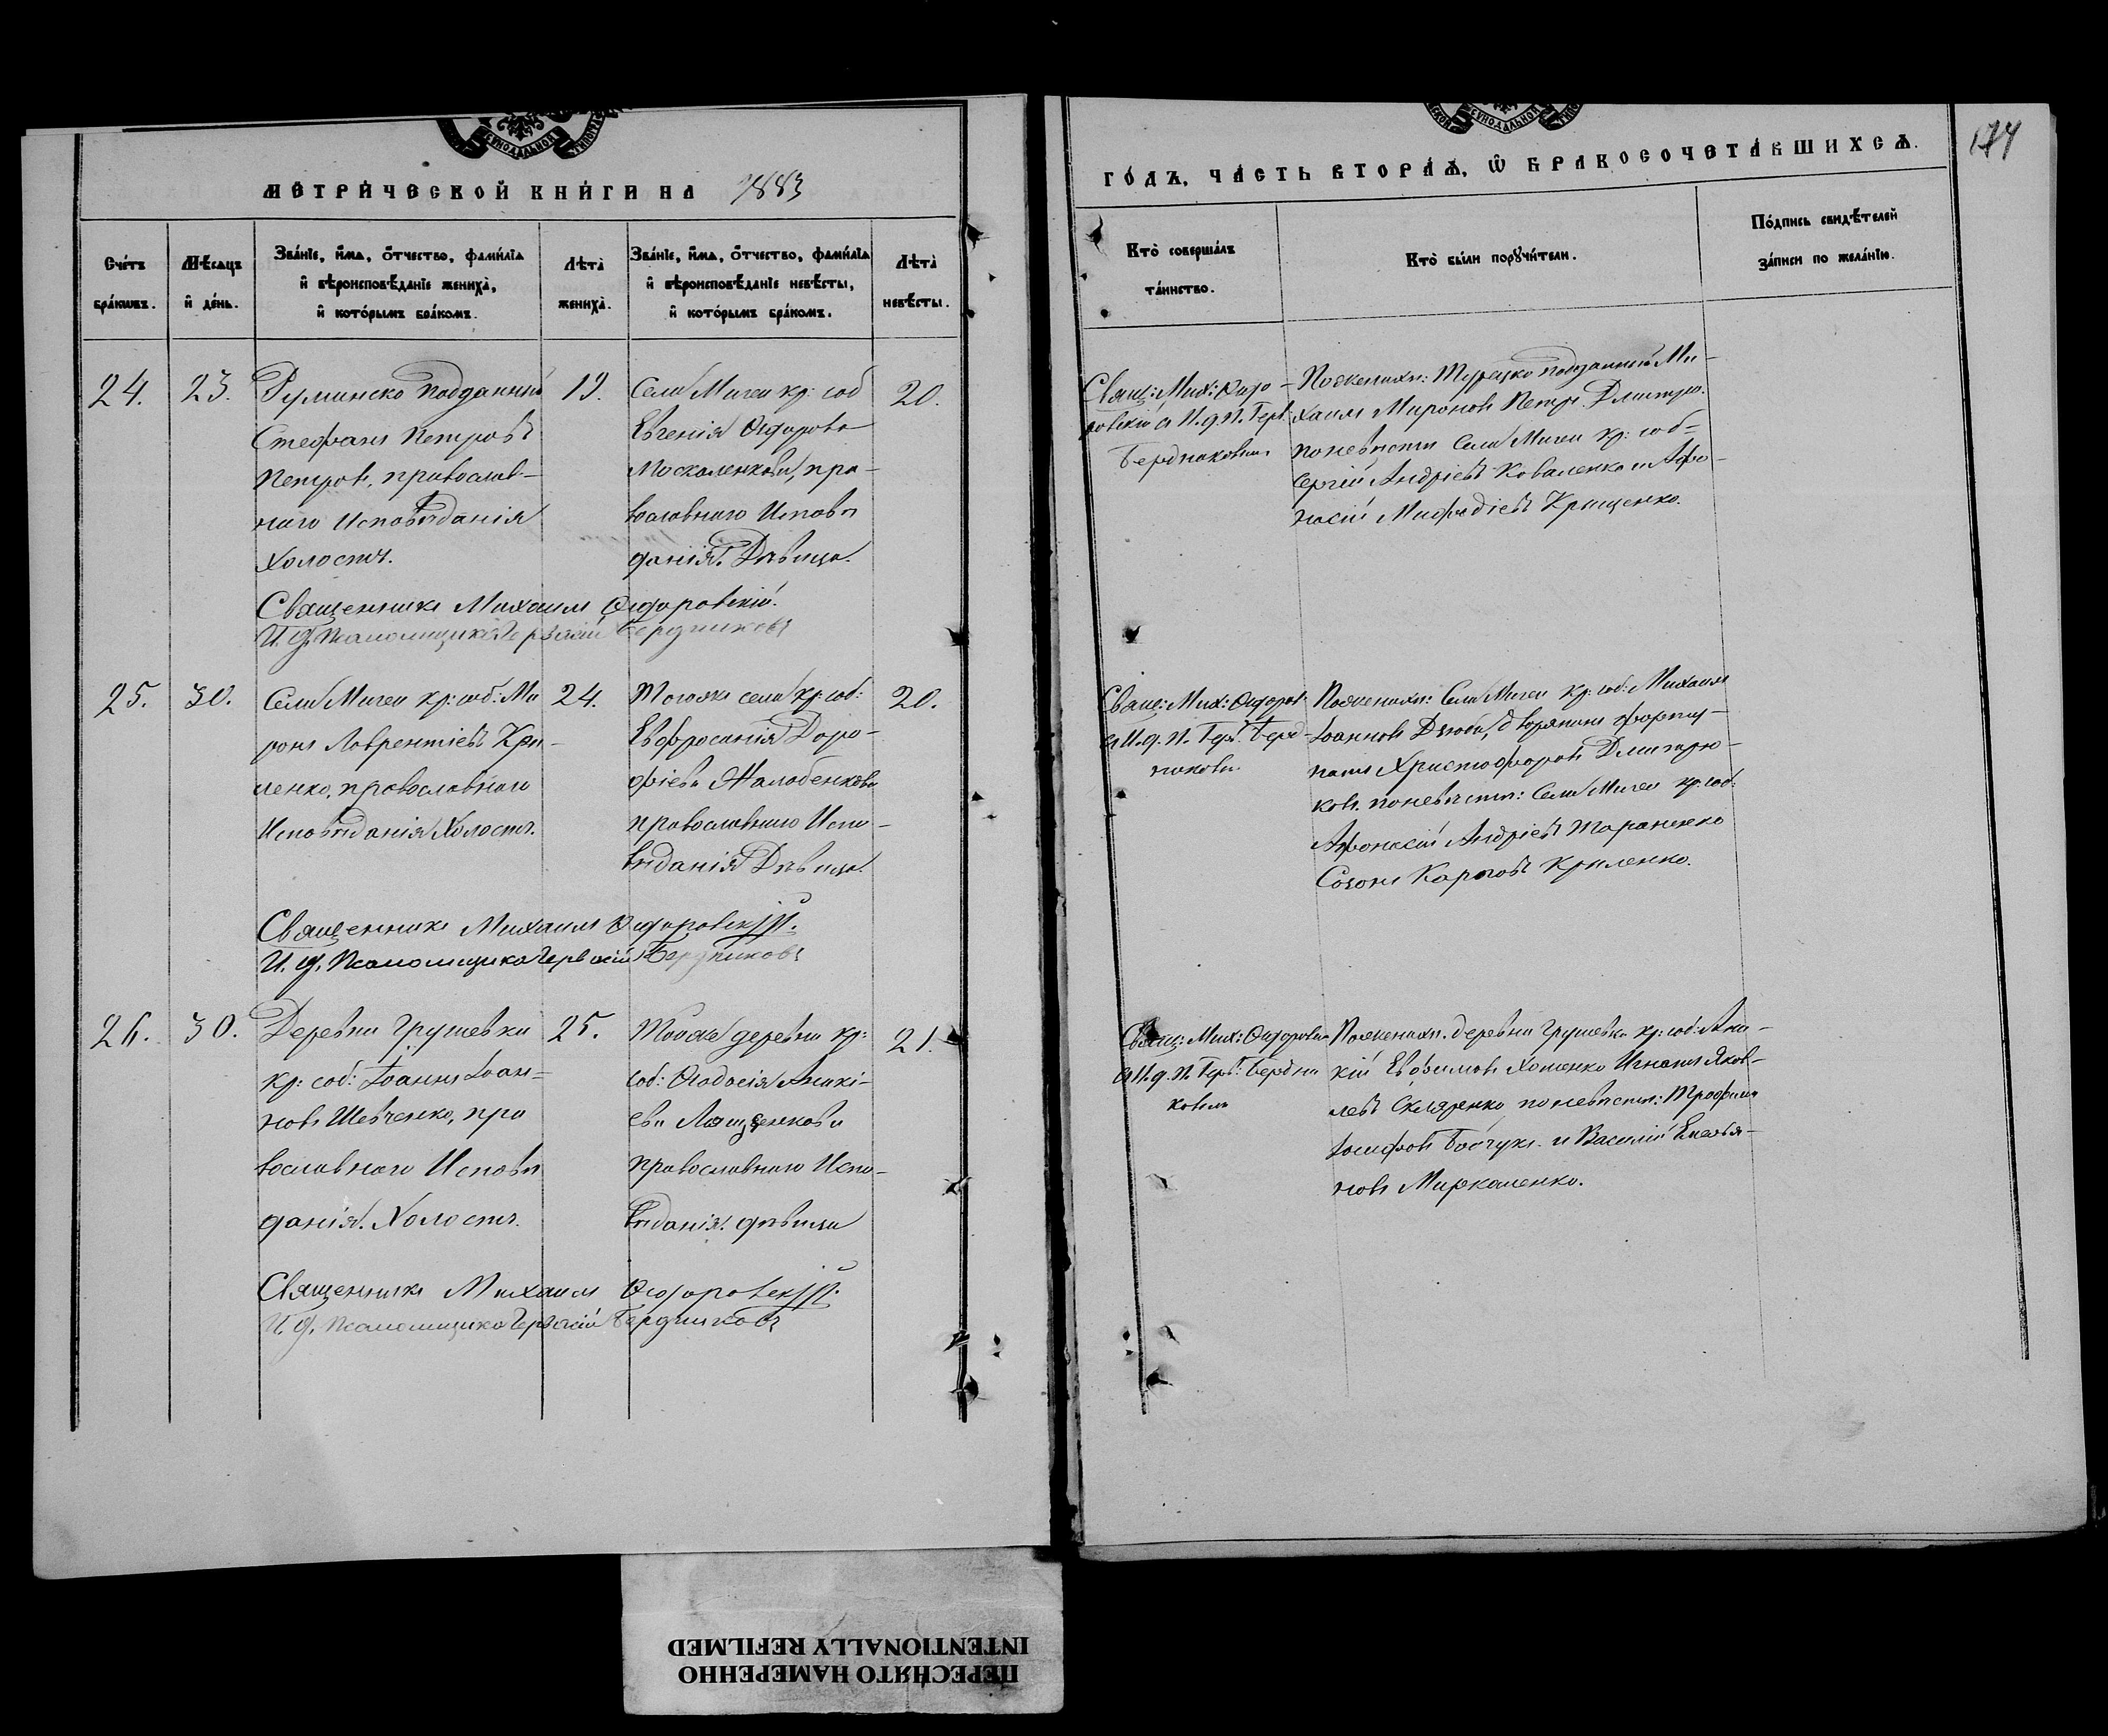 МЕТРИЧЕСКОЙ КНИГИ НА 1883
Счетъ браковъ.
Мѣсяцъ и день.
Званіе, имя, отчество, фамилія и вѣроисповѣданіе жениха, и которымъ бракомъ.
Лѣта жениха.
Званіе, имя, отчество, фамилія и вѣроисповѣданіе невѣсты, и которымъ бракомъ.
Лѣта невѣсты.
24.
23.
Руминско подданный
Стефанъ Петровъ
Петровъ, православ-
наго Исповѣданія
Холостъ.
19.
Села Мигеи кр: соб
Евгенія Ѳедорова
Москаленкова, пра-
вославнаго Исповѣ
данія. Дѣвица.
20.
Священникъ Михаилъ Ѳедоровскій.
И. д. Псаломщика Гервасій Бердниковъ
25.
30.
Села Мигеи кр: соб: Ми
ронъ Лаврентіевъ Кри-
ленко, православнаго
Исповѣданія Холостъ.
24.
Тогоже села кр: соб:
Евфросинія Доро-
фіева Жалобенкова
православнаго Испо-
вѣданія Дѣвица.
20.
Священникъ Михаилъ Ѳедоровскій.
И. д. Псаломщика Гервасій Бердниковъ
26.
30.
Деревни Грушевки
кр: соб: Іоаннъ Іоан-
новъ Шевченко, пра
вославнаго Исповѣ
данія. Холостъ.
25.
Тойже деревни кр:
соб: Ѳеодосія Аникі-
ева Лященкова
православнаго Испо-
вѣданія. дѣвица
21.
Священникъ Михаилъ Ѳедоровскій.
И. д. Псаломщика Гервасій Бердниковъ
ГОДЪ, ЧАСТЬ ВТОРАЯ, Ѡ БРАКОСОЧЕТАВШИХСЯ.
174
Кто совершалъ таинство.
Кто были поручители.
Подпись свидѣтелей записи по желанію.
Свящ: Мих: Ѳедо-
ровскій съ И. д. П. Герв:
Бердниковымъ
Поженихѣ: Турецко подданный Ми-
хаилъ Мироновъ Петръ Дмитрю.
поневѣстѣ Села Мигеи кр: соб-
Сергій Андріевъ Коваленко и Афа-
насій Мефодіевъ Крищенко.
Свящ: Мих: Ѳедоров:
съ И. д. П. Герв: Берд-
никовы.
Поженихѣ: Села Мигеи кр: соб: Михаилъ
Іоанновъ Дзюба, дворянинъ
Христофоровъ Дмитрю-
ковъ. поневѣстѣ: Села Мигеи кр: соб:
Афанасій Андріевъ Тараненко
Созонъ Карповъ Криленко.
Свящ: Мих: Ѳедоровск
съ И. д. П. Герв: Бердни
ковымъ
Поженихѣ. деревни Грушевки кр: соб: Ани-
кій Евфимовъ Хоменко Игнатъ Яков-
левъ Скляренко поневѣстѣ: Трофимъ
Іосифовъ Бойчукъ. и Василій Емелья-
новъ Миркаленко.
ПЕРЕСНЯТО НАМЕРЕННО
INTENTIONALLY REFILMED